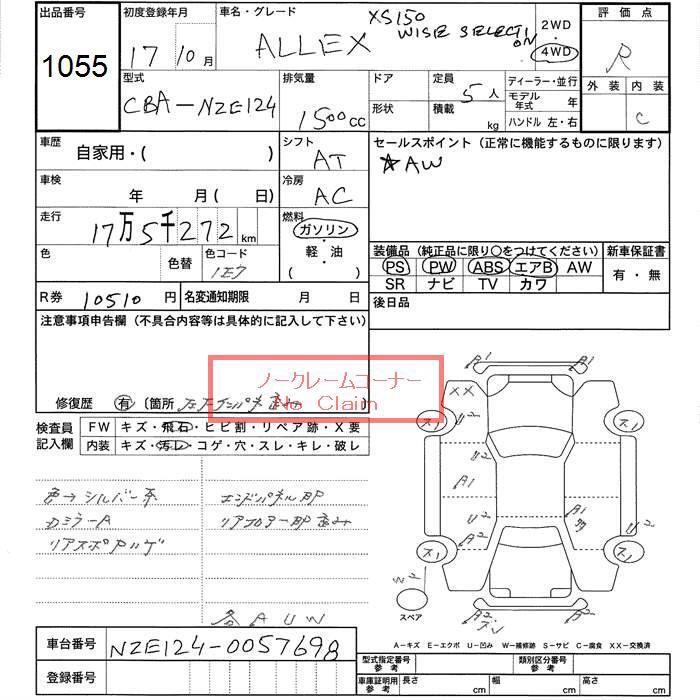 出品番号 初度登録年月 車名・グレード XS150 2WD 評価点
1055 17 10月 ALLEX WISE SELECTION 4WD R
型式 排気量 ドア 定員 ディーラー・並行 外装 内装
CBA-NZE124 1500cc 5人 モデル年式 年 C
形状 積載 kg ハンドル 左・右
車歴 シフト セールスポイント(正常に機能するものに限ります)
自家用・( ) AT ☆AW
車検 冷房
年 月( 日) AC
走行 燃料
17万5千272km ガソリン
色 色替 色コード 軽・油 装備品(純正品に限り○をつけてください) 新車保証書
1E7 ( ) PS PW ABS エアB AW 有・無
SR ナビ TV カワ
R券 10510円 名変通知期限 月 日 後日品
注意事項申告欄(不具合内容等は具体的に記入して下さい)
ノークレームコーナー
No Claim
修復歴 有 〔箇所
検査員 FW キズ・飛石・ヒビ割・リペア跡・X要
記入欄 内装 キズ・汚レ・コゲ・穴・スレ・キレ・破レ
色→シルバー系 エンドパネルAP
DミラーA リアフロアーAP歪み
リアスポアルゲ
各AUW
A1 A1
XX
ス1 U2 ス1
U2
A1
A1
U2 U2
ス1 A2 ス1
スペア
A2
A-キズ E-エクボ U-凹み W-補修跡 S-サビ C-腐食 XX-交換済
車台番号 NZE124-0057698
型式指定番号 参考 類別区分番号 参考
登録番号 車庫証明用 参考 長さ cm 幅 cm 高さ cm